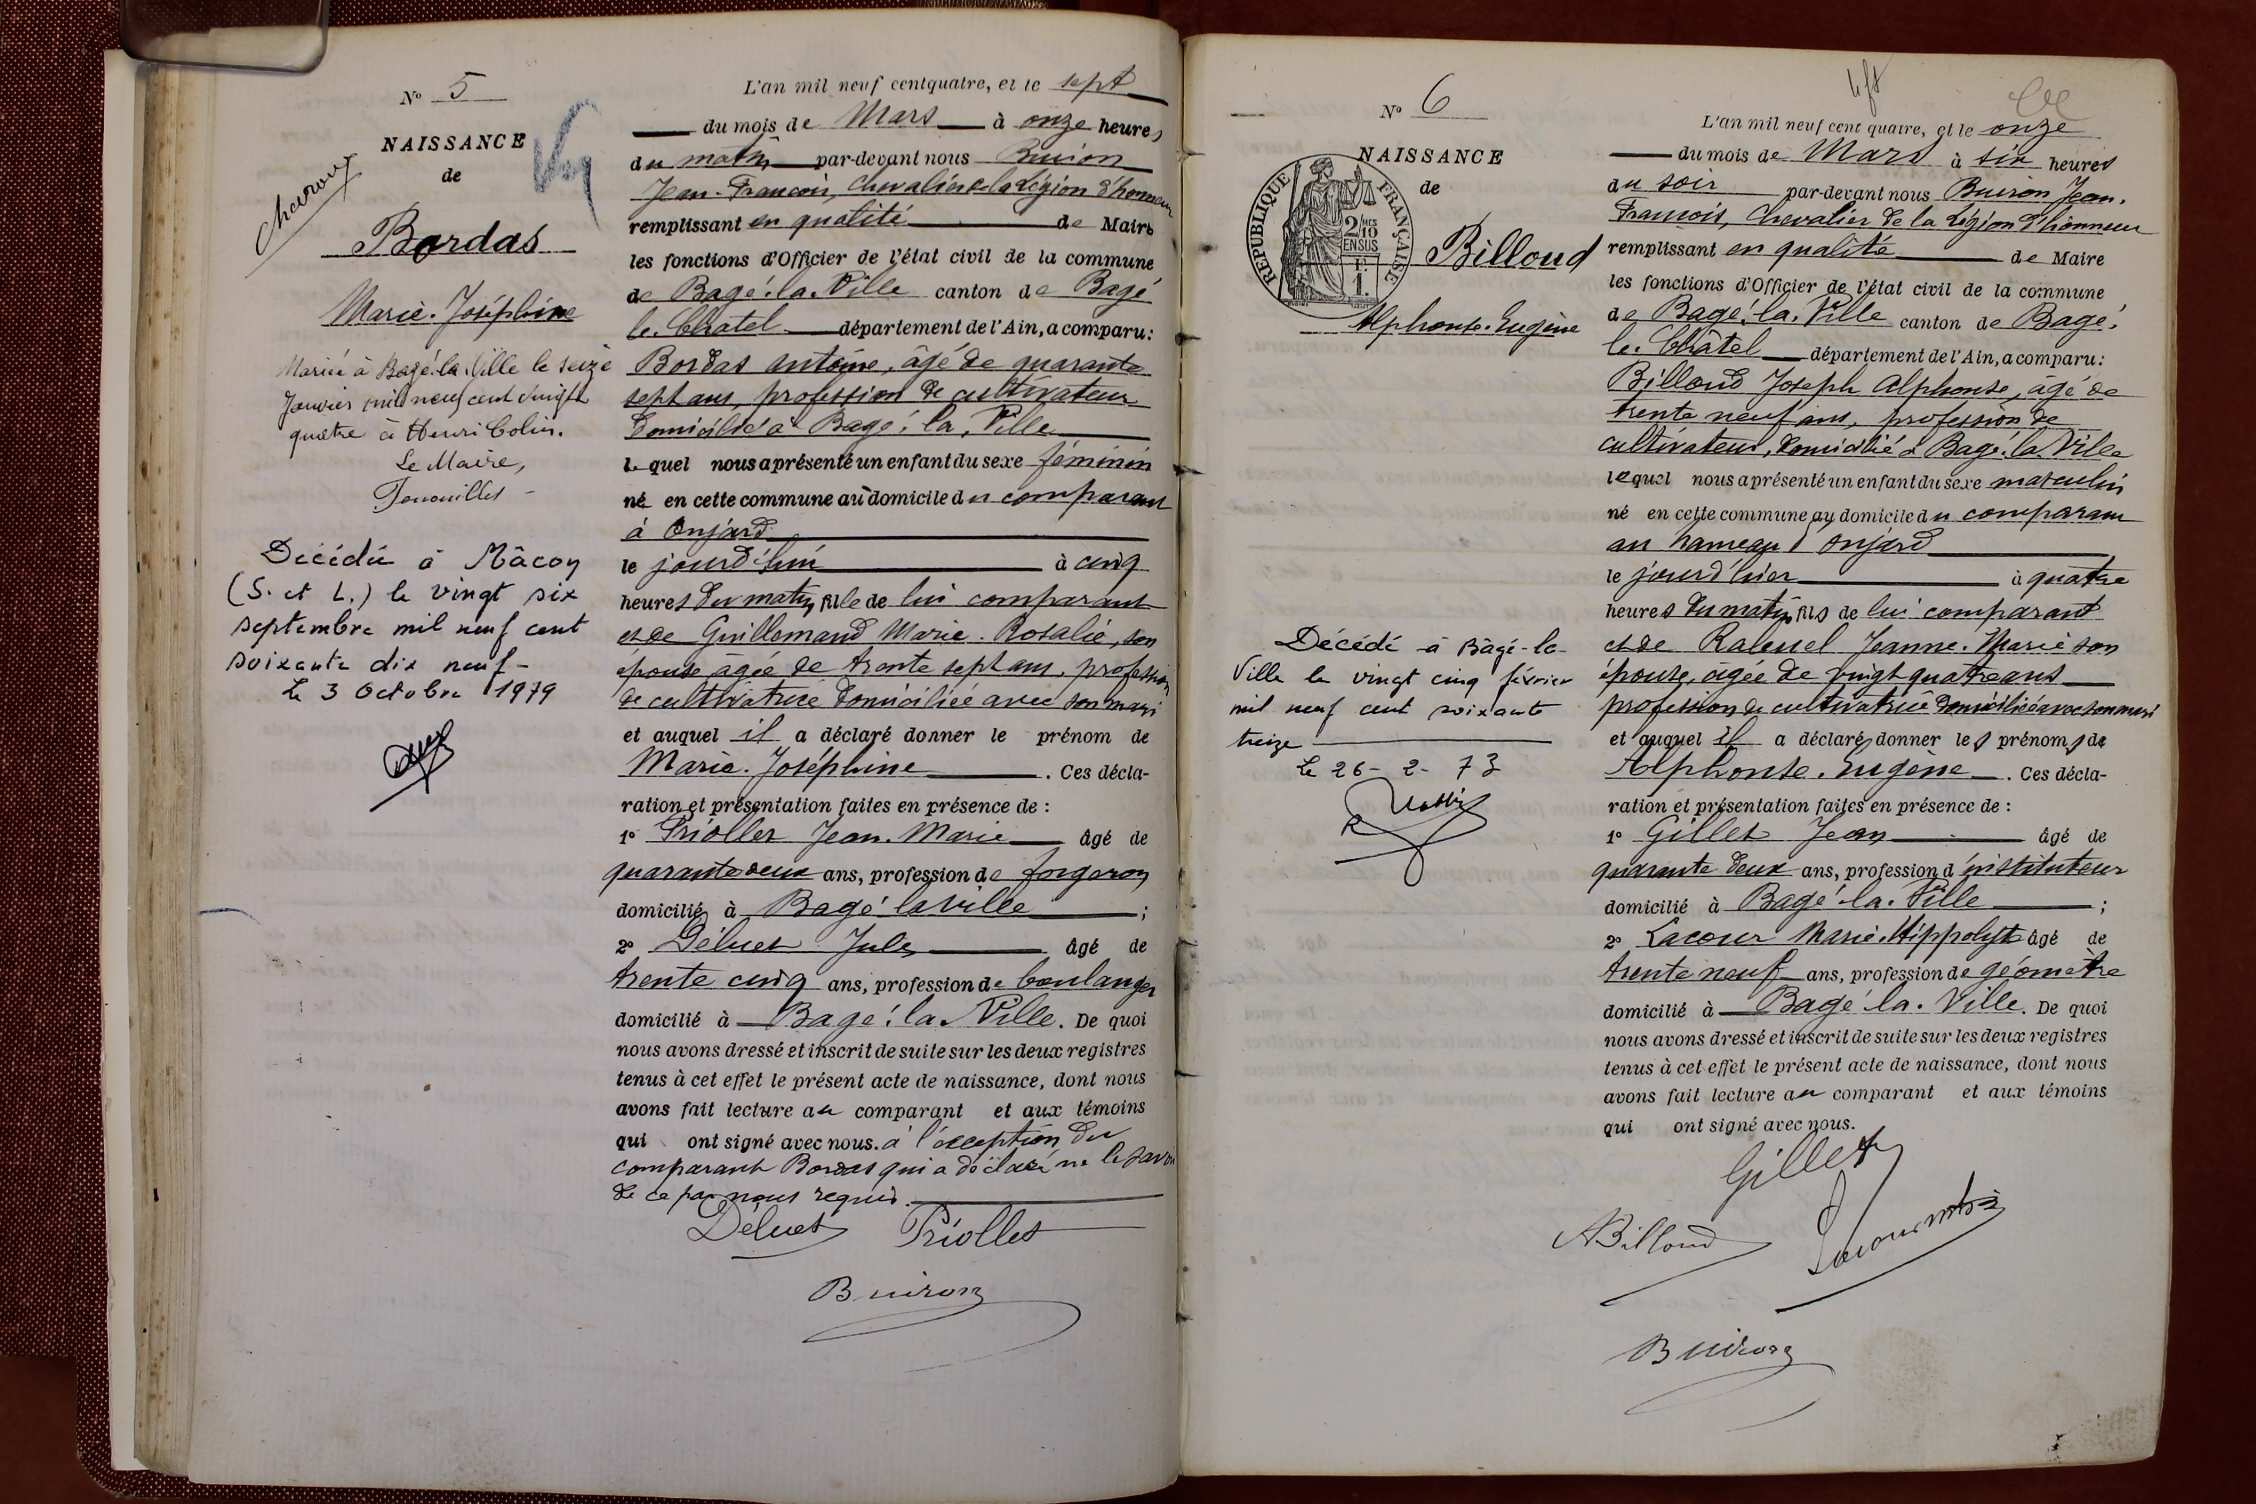 N° 5
NAISSANCE
de
Chevroux
Bordas
Marie-Joséphine
Mariée à Bagé-la-Ville le seize
Janvier mil neuf cent vingt
quatre à Henri Colin.
Le Maire,
Décédée à Mâcon
(S. et L.) le vingt six
septembre mil neuf cent
soixante dix neuf -
Le 3 Octobre 1979
L'an mil neuf cent quatre, et le sept
du mois de Mars à onze heures
du matin par-devant nous Buiron
Jean-François, Chevalier de la Légion d'honneur
remplissant en qualité de Maire
les fonctions d'Officier de l'état civil de la commune
de Bagé-la-Ville canton de Bagé
le-Châtel département de l'Ain, a comparu:
Bordas Antoine, âgé de quarante
sept ans, profession de cultivateur
domicilié à Bagé-la-Ville
lequel nous a présenté un enfant du sexe féminin
né en cette commune au domicile du comparant
à Onjard
le jourd'hui à cinq
heures du matin fille de lui comparant
et de Guillemaud Marie-Rosalie, son
épouse âgée de trente sept ans, profession
de cultivatrice domiciliée avec son mari
et auquel il a déclaré donner le prénom de
Marie-Joséphine. Ces décla-
ration et présentation faites en présence de :
1° Priollet Jean-Marie âgé de
quarante deux ans, profession de forgeron
domicilié à Bagé la Ville ;
2° Déluet Jules âgé de
trente cinq ans, profession de boulanger
domicilié à Bagé-la-Ville. De quoi
nous avons dressé et inscrit de suite sur les deux registres
tenus à cet effet le présent acte de naissance, dont nous
avons fait lecture au comparant et aux témoins
qui ont signé avec nous. à l'exception du
comparant Bordas qui a déclaré ne le savoir
de ce par nous requis.
Déluet Priollet
Buiron
N° 6
NAISSANCE
de
RÉPUBLIQUE FRANÇAISE
2/10 MES
EN SUS
1.
Billoud
Alphonse-Eugène
Décédé à Bâgé-la-
Ville le vingt cinq février
mil neuf cent soixante
treize
Le 26-2-73
L'an mil neuf cent quatre, et le onze
du mois de Mars à six heures
du soir par-devant nous Buiron Jean-
François, Chevalier de la Légion d'honneur
remplissant en qualité de Maire
les fonctions d'Officier de l'état civil de la commune
de Bagé-la-Ville canton de Bagé-
le-Châtel département de l'Ain, a comparu:
Billoud Joseph Alphonse, âgé de
trente neuf ans, profession de
cultivateur, domicilié à Bagé-la-Ville
lequel nous a présenté un enfant du sexe masculin
né en cette commune au domicile du comparant
au hameau d'Onjard
le jourd'hier à quatre
heures du matin fils de lui comparant
et de Jeanne-Marie son
épouse, âgée de vingt quatre ans
profession de cultivatrice domiciliée avec son mari
et auquel il a déclaré donner les prénoms de
Alphonse-Eugène. Ces décla-
ration et présentation faites en présence de :
1° Gillet Jean âgé de
quarante deux ans, profession d'instituteur
domicilié à Bagé-la-Ville ;
2° Lacour Marie-Hippolyte âgé de
trente neuf ans, profession de géomètre
domicilié à Bagé-la-Ville. De quoi
nous avons dressé et inscrit de suite sur les deux registres
tenus à cet effet le présent acte de naissance, dont nous
avons fait lecture au comparant et aux témoins
qui ont signé avec nous.
Gillet
ABilloud
Buiron